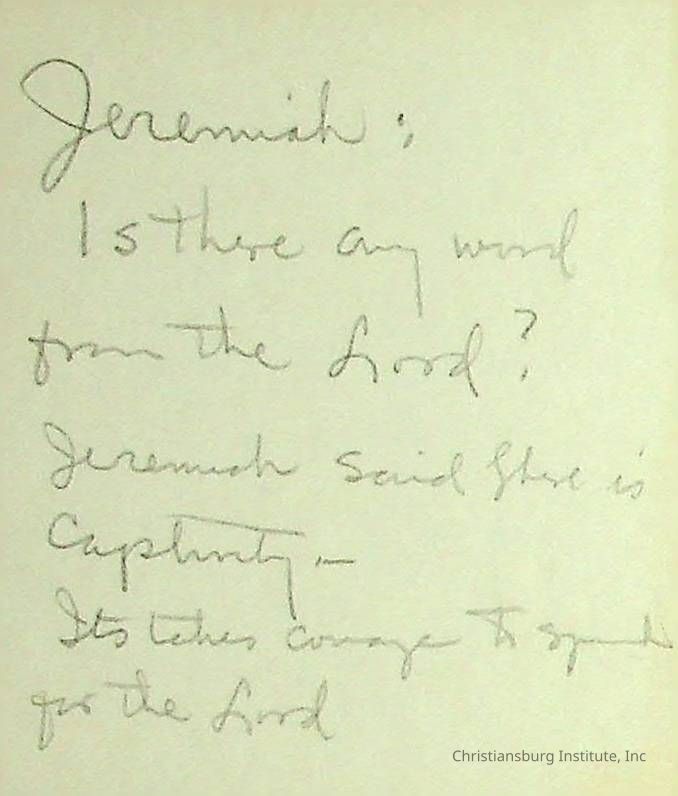 Jeremiah :
Is there any word
from the Lord ?
Jeremiah said there is
Captivity. —
Its takes courage to speak
for the Lord
Christiansburg Institute, Inc